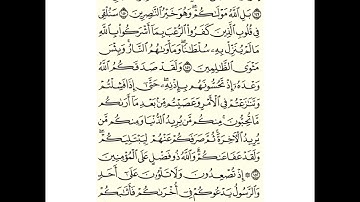 ١٤٩ بَلِ ٱللَّهُ مَوْلَىٰكُمْ ۖ وَهُوَ خَيْرُ ٱلنَّـٰصِرِينَ ١٥٠ سَنُلْقِى
فِى قُلُوبِ ٱلَّذِينَ كَفَرُوا۟ ٱلرُّعْبَ بِمَآ أَشْرَكُوا۟ بِٱللَّهِ
مَا لَمْ يُنَزِّلْ بِهِۦ سُلْطَـٰنًا ۖ وَمَأْوَىٰهُمُ ٱلنَّارُ ۚ وَبِئْسَ
مَثْوَى ٱلظَّـٰلِمِينَ ١٥١ وَلَقَدْ صَدَقَكُمُ ٱللَّهُ
وَعْدَهُۥٓ إِذْ تَحُسُّونَهُم بِإِذْنِهِۦ ۖ حَتَّىٰٓ إِذَا فَشِلْتُمْ
وَتَنَـٰزَعْتُمْ فِى ٱلْأَمْرِ وَعَصَيْتُم مِّنۢ بَعْدِ مَآ أَرَىٰكُم
مَّا تُحِبُّونَ ۚ مِنكُم مَّن يُرِيدُ ٱلدُّنْيَا وَمِنكُم مَّن
يُرِيدُ ٱلْـَٔاخِرَةَ ۚ ثُمَّ صَرَفَكُمْ عَنْهُمْ لِيَبْتَلِيَكُمْ ۖ
وَلَقَدْ عَفَا عَنكُمْ ۗ وَٱللَّهُ ذُو فَضْلٍ عَلَى ٱلْمُؤْمِنِينَ
١٥٢ ۞ إِذْ تُصْعِدُونَ وَلَا تَلْوُۥنَ عَلَىٰٓ أَحَدٍ
وَٱلرَّسُولُ يَدْعُوكُمْ فِىٓ أُخْرَىٰكُمْ فَأَثَـٰبَكُمْ